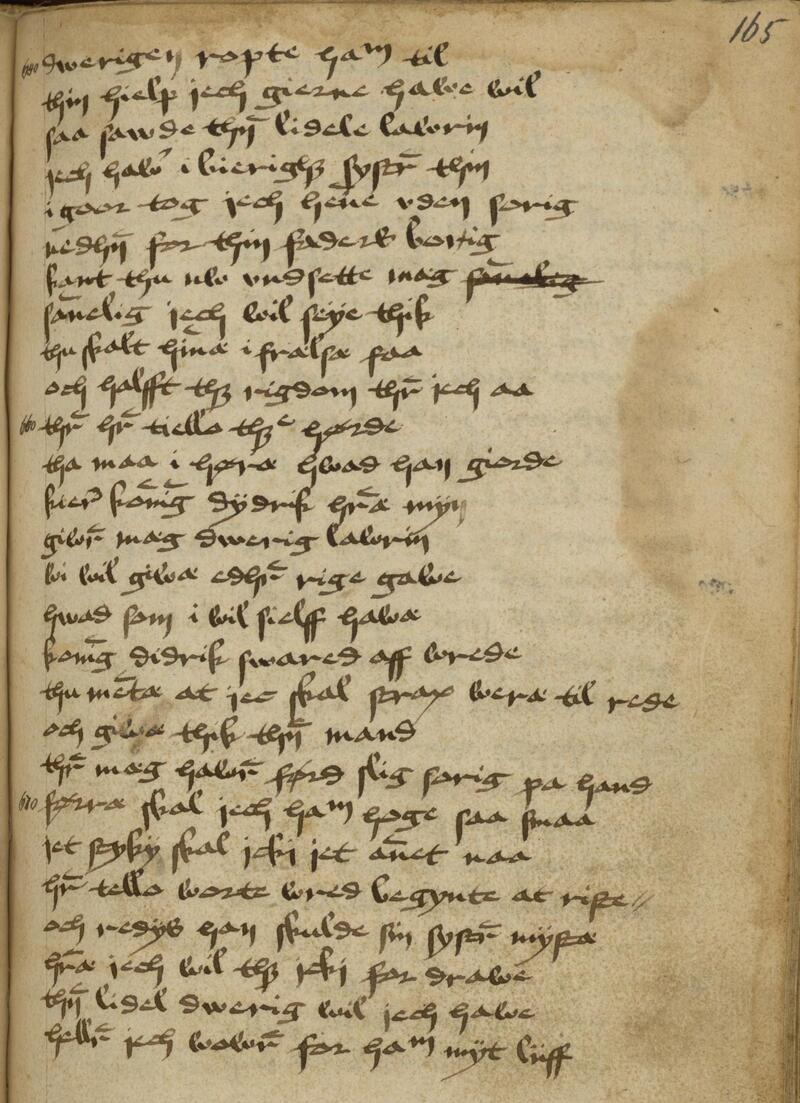 165
650 dwerigen ropte ham til
thin hielp jech gierne hawe wil
saa sawde thn̄ lidele lawrin
jech haw' i bierighꝫ systr̄ thin
i goor tog jech hen̄e vden sorig
nedhn̄ for thin faders borig
kant thu nw vndsette mag
san̄elig jech wil seye thik
thu skalt hin̄a i frælsæ faa
och halfft thꝫ rigdom thr̄ jech aa
660 thr̄ hr̄ tiello thꝫ hørde
tha maa i høræ hwad han giorde
kier' kon̄ig dydrik hr̄æ myn
giwr̄ mæg dwerig lawrin
wi wil giwæ edhr̄ rige gawe
hwad som i wil sielff hawæ
konīg didrik swared aff wrede
thu mēte at jec skal strax weræ til rede
och giwæ thik thn̄ mand
thr̄ mæg hawr̄ førd slig sorig pa hand
670 førræ skal jech ham hoge saa smaa
jet styky skal jcki jet an̄et naa
hr̄ tello worte wred begynte at riste //
och redys han skulde sin systr̄ mystæ
hr̄æ jech wil thꝫ jcki for drawe
thn̄ lidel dwerig wil jech hawe
hellr̄ jech wowr̄ for ham myt liiff